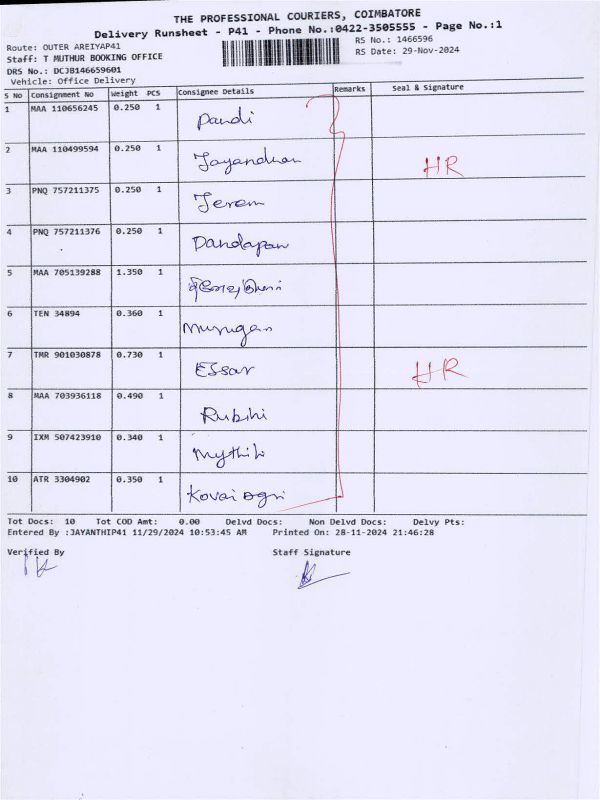 THE PROFESSIONAL COURIERS, COIMBATORE
Delivery Runsheet - P41 - Phone No.:0422-3505555 - Page No.:1
Route: OUTER AREIYAP41
RS No.: 1466596
Staff: T MUTHUR BOOKING OFFICE
RS Date: 29-Nov-2024
DRS No.: DCJB146659601
Vehicle: Office Delivery
S No Consignment No Weight PCS Consignee Details Remarks Seal & Signature
1 MAA 110656245 0.250 1 Pandi
2 MAA 110499594 0.250 1 HR
3 PNQ 757211375 0.250 1 Jeram
4 PNQ 757211376 0.250 1 Dandapan
5 MAA 705139288 1.350 1
6 TEN 34894 0.360 1 Murugan
7 TMR 901030878 0.730 1 Essar HR
8 MAA 703936118 0.490 1 Rubini
9 IXM 507423910 0.340 1 Mythili
10 ATR 3304902 0.350 1 Kovai agri
Tot Docs: 10 Tot COD Amt: 0.00 Delvd Docs: Non Delvd Docs: Delvy Pts:
Entered By :JAYANTHIP41 11/29/2024 10:53:45 AM Printed On: 28-11-2024 21:46:28
Verified By Staff Signature